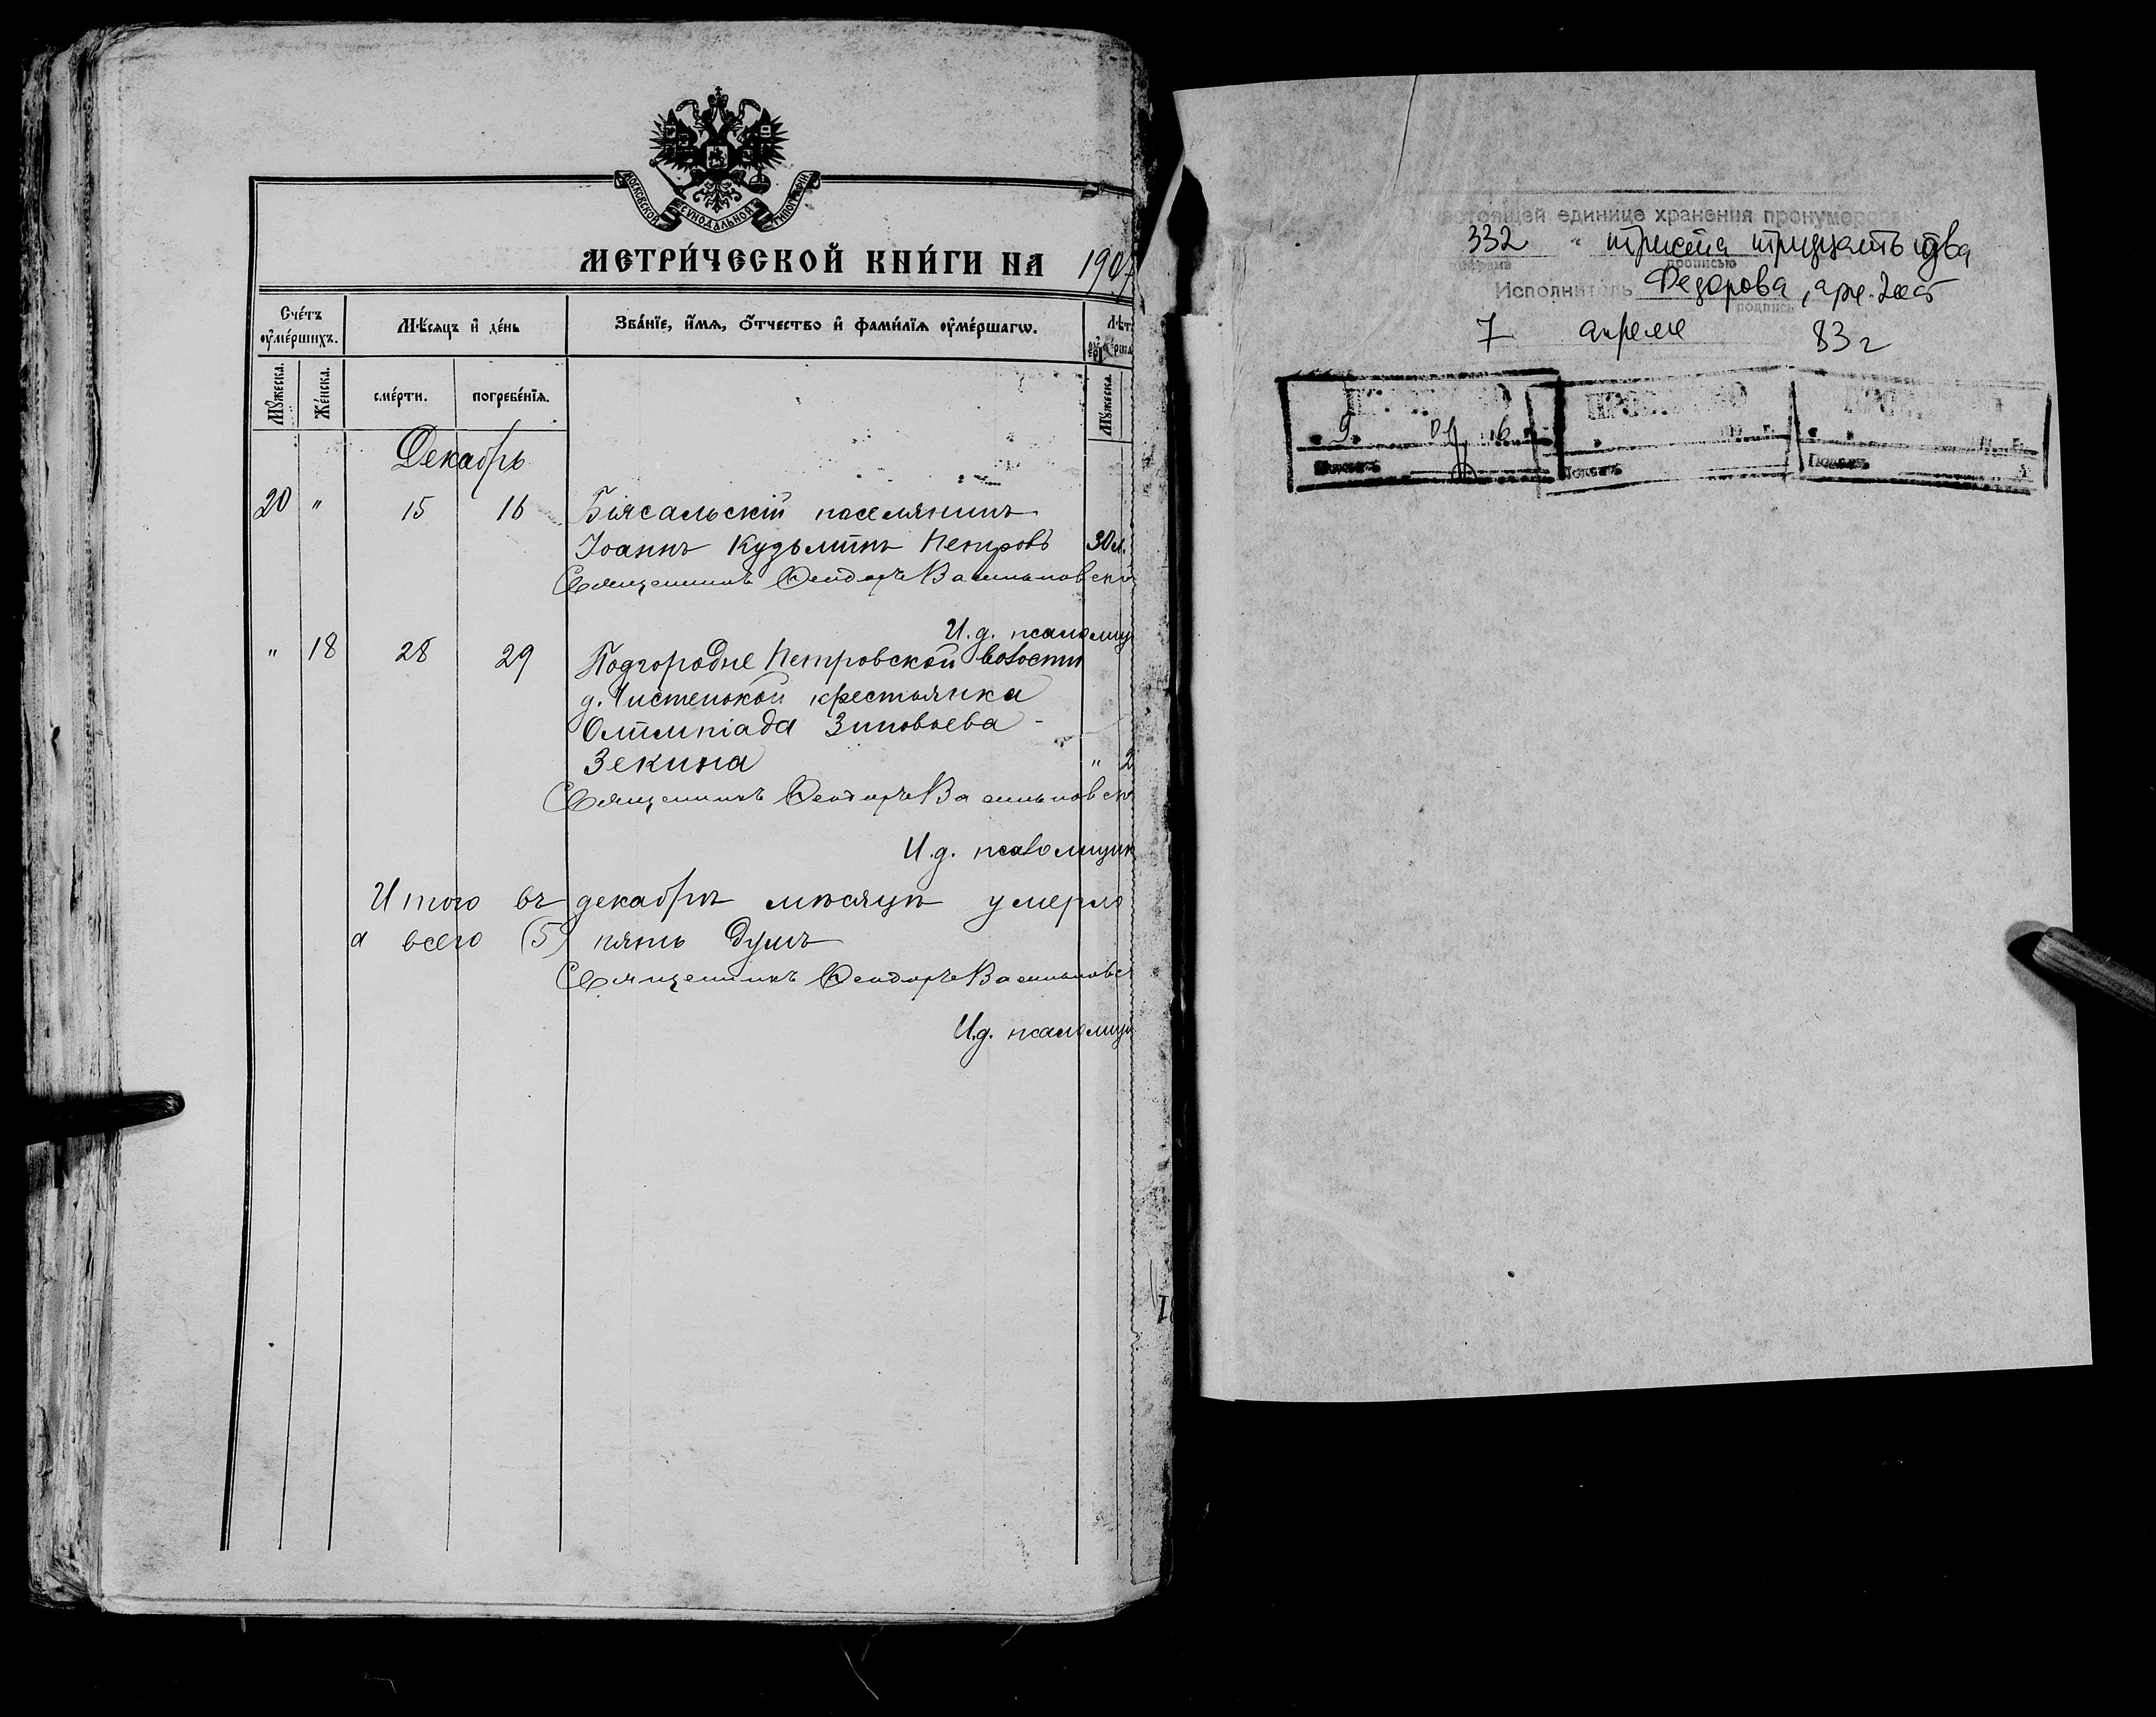 МОСКОВСКОЙ СѴНОДАЛЬНОЙ ТИПОГРАФІИ
МЕТРИ́ЧЕСКОЙ КНИ́ГИ НА 1907
Сче́тъ ᲂу҆ме́ршихъ.
Мѣ́сяцъ и҆ де́нь
Зва́нїе, и҆́мя, ѻ҆́тчество и҆ фами́лїя ᲂу҆ме́ршагѡ.
Лѣт
Мꙋ́жеска.
Же́нска.
сме́рти.
погребе́нїѧ.
Мꙋ́жеска
Декабрь
20 " 15 16 Біясальскій поселянинъ
Іоаннъ Кузьминъ Петровъ 30 л.
Священникъ Ѳеодоръ Васильковск
И. д. псаломщ
" 18 28 29 Подгородне Петровской волости
д. Чистенькой крестьянка
Олимпіада Зиновьева
Зекина " 2
Священникъ Ѳеодоръ Васильковск
И. д. псаломщик
Итого въ декабрѣ мѣсяцѣ умерло
а всего (5) пять душъ
Священникъ Ѳеодоръ Васильковс
И. д. псаломщи
стоящей единице хранения пронумеро
332 " триста тридцать два
прописью
Исполнитель Федорова,
подпись
7 апреля 83 г